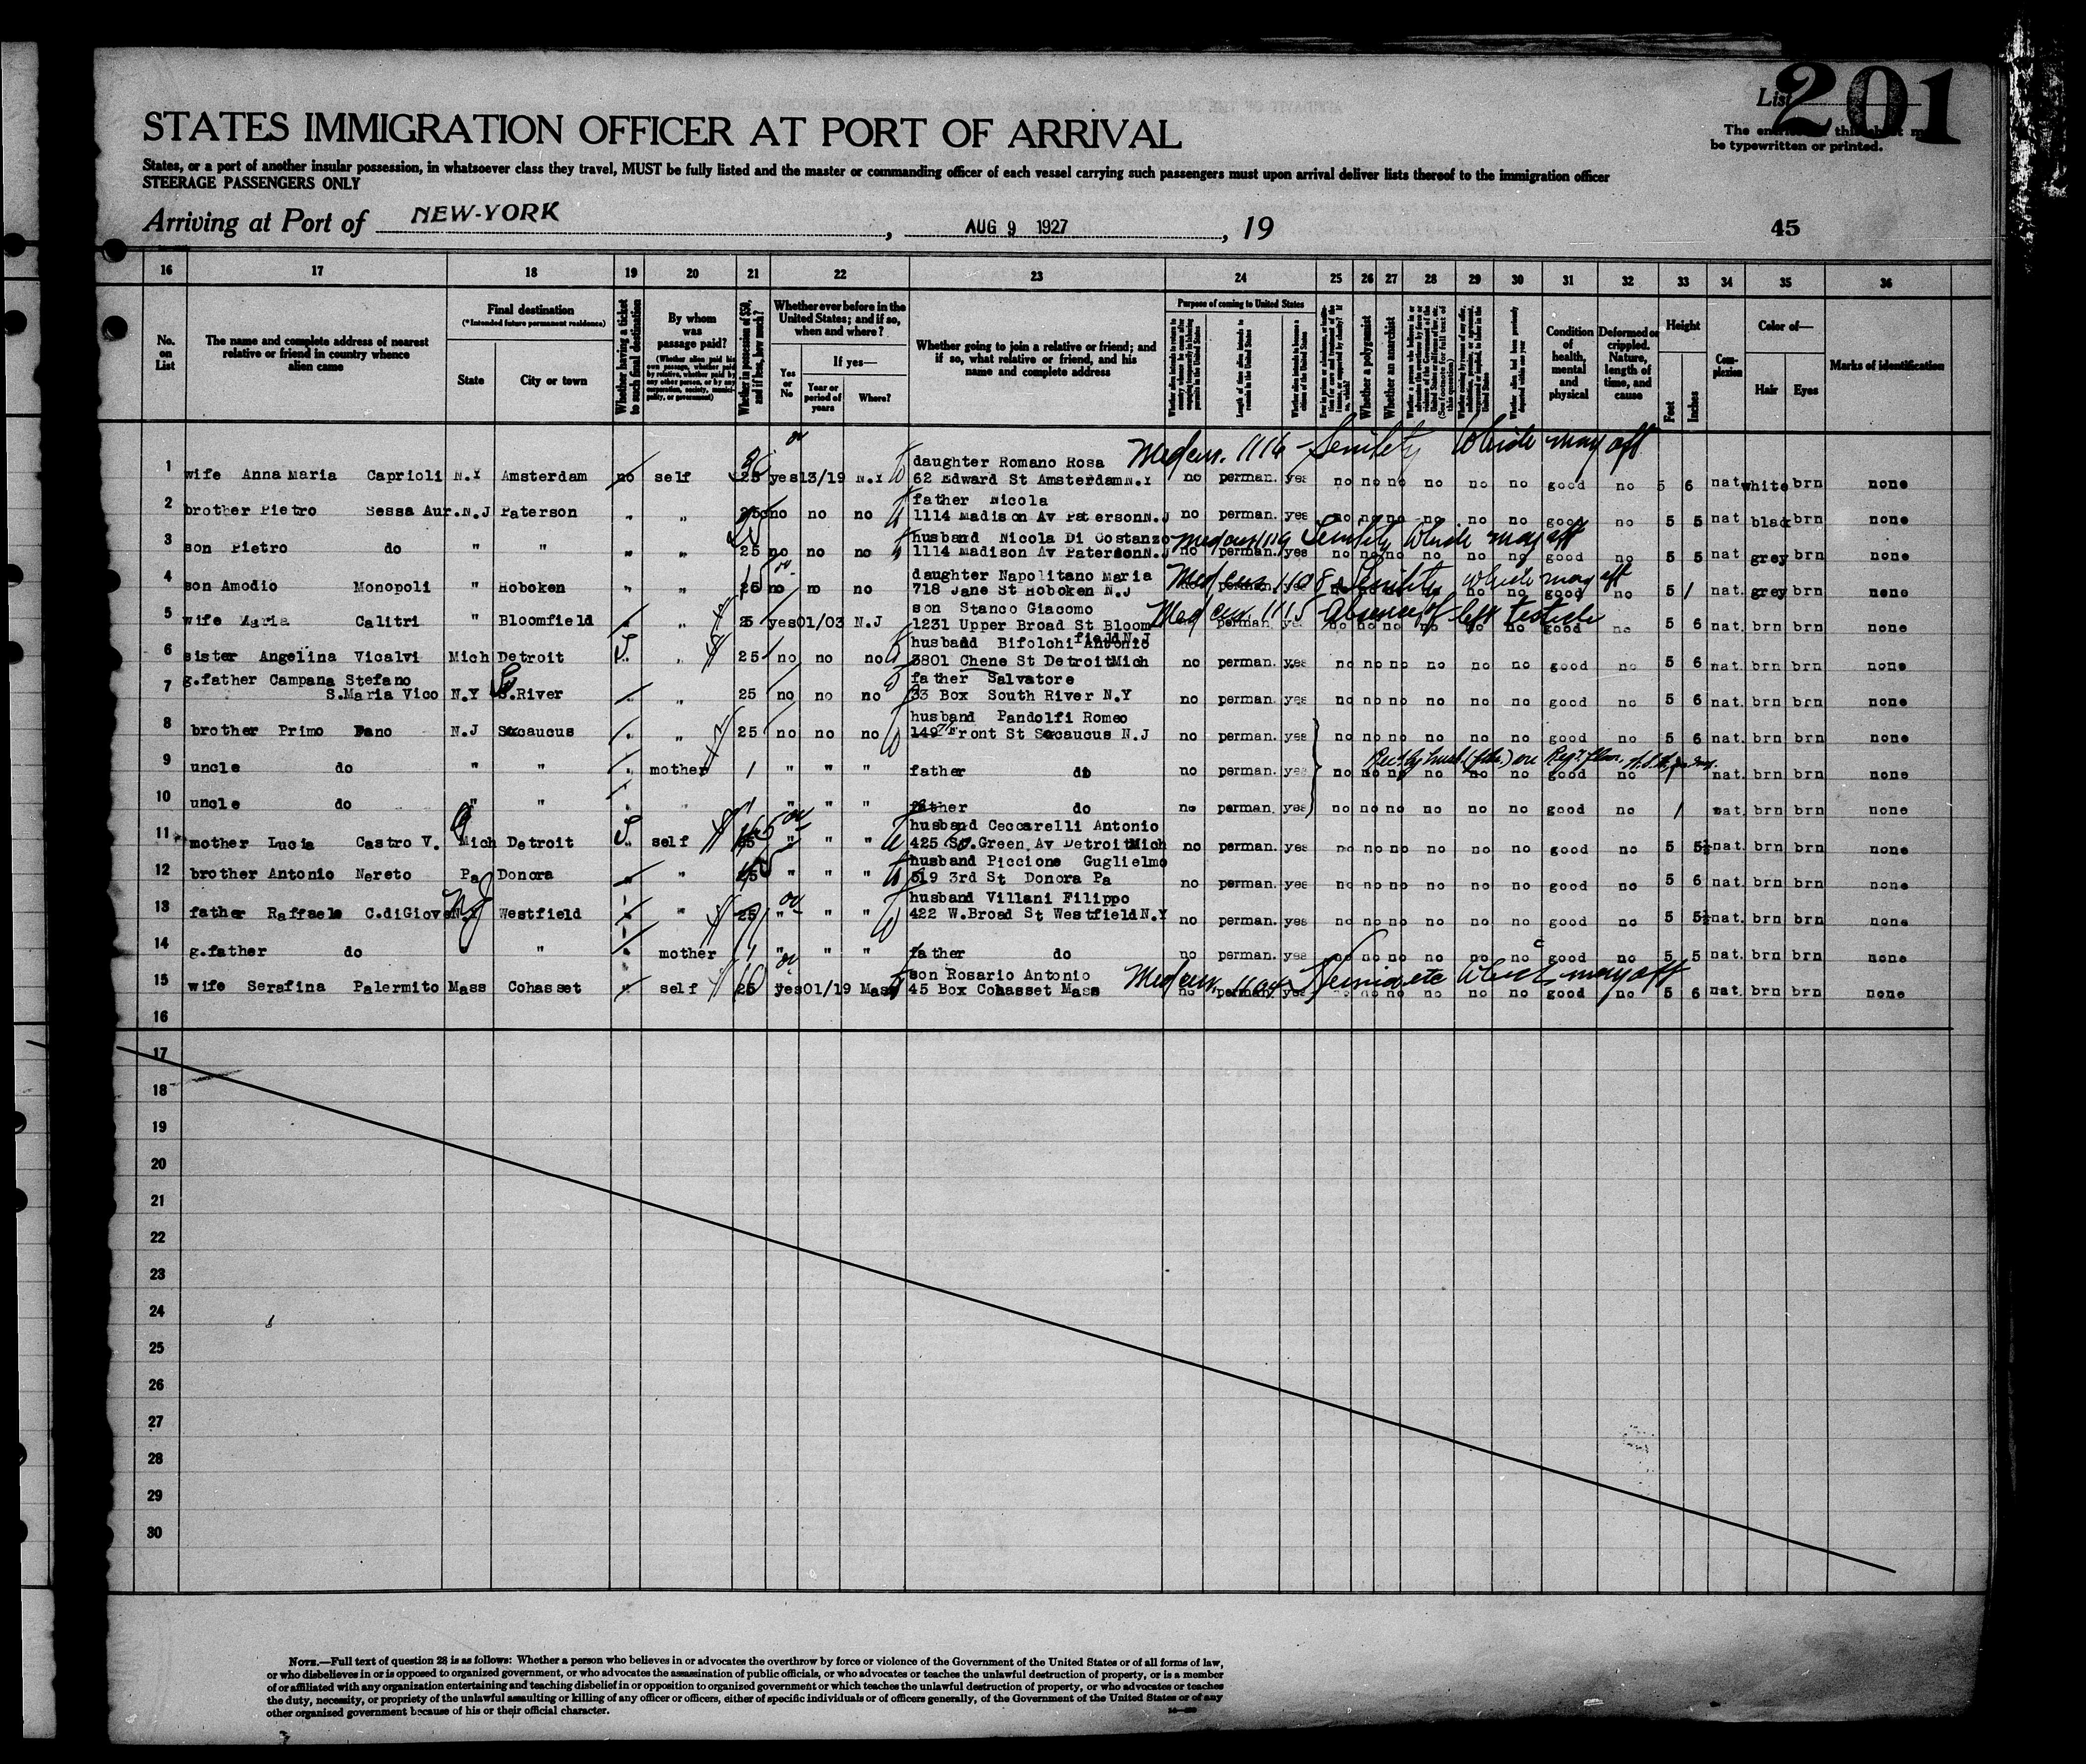 List 201
The entries on this sheet must
be typewritten or printed.
STATES IMMIGRATION OFFICER AT PORT OF ARRIVAL
States, or a port of another insular possession, in whatsoever class they travel, MUST be fully listed and the master or commanding officer of each vessel carrying such passengers must upon arrival deliver lists thereof to the immigration officer
STEERAGE PASSENGERS ONLY
Arriving at Port of NEW-YORK, AUG 9 1927, 19 45
16 17 18 19 20 21 22 23 24 25 26 27 28 29 30 31 32 33 34 35 36
No. on List
The name and complete address of nearest relative or friend in country whence alien came
Final destination
(*Intended future permanent residence)
State City or town
Whether having a ticket to such final destination
By whom was passage paid?
(Whether alien paid his own passage, whether paid by relative, whether paid by any other person, or by any corporation, society, municipality, or government)
Whether in possession of $50, and if less, how much?
Whether ever before in the United States; and if so, when and where?
Yes or No
If yes—
Year or period of years
Where?
Whether going to join a relative or friend; and if so, what relative or friend, and his name and complete address
Purpose of coming to United States
Whether a polygamist
Whether an anarchist
Condition of health, mental and physical
Deformed or crippled. Nature, length of time, and cause
Height
Feet Inches
Complexion
Color of—
Hair Eyes
Marks of identification
Med cer. 1116 - Senility Which may aff
daughter Romano Rosa
1 wife Anna Maria Caprioli N.Y Amsterdam no self 25 yes 13/19 N.Y 62 Edward St Amsterdam N.Y no perman. yes no no no no no no good no 5 6 nat white brn none
father Nicola
2 brother Pietro Sessa Aur. N.J Paterson " " 25 no no no 1114 Madison Av Paterson N.J no perman. yes no no no no no no good no 5 5 nat black brn none
husband Nicola Di Costanzo Med cer 1119 Senility Which may aff
3 son Pietro do " " " " 25 no no no 1114 Madison Av Paterson N.J no perman. yes no no no no no no good no 5 5 nat grey brn none
daughter Napolitano Maria Med cer 1108 Senility which may aff
4 son Amodio Monopoli " Hoboken " " 25 no no no 718 Jane St Hoboken N.J no perman. yes no no no no no no good no 5 / nat. grey brn none
son Stanco Giacomo Med cer. 1115 Absence of left testicle
5 wife Maria Calitri " Bloomfield " 25 yes 01/03 N.J 1231 Upper Broad St Bloomfield N.J perman. yes no no no no no no good no 5 6 nat. brn brn none
husband Bifolchi Antonio
6 sister Angelina Vicalvi Mich Detroit " " 25 no no no 3801 Chene St Detroit Mich no perman. yes no no no no no no good no 5 6 nat. brn brn none
g.father Campana Stefano father Salvatore
7 S.Maria Vico N.Y S.River " 25 no no no 33 Box South River N.Y no perman. yes no no no no no no good no 5 6 nat. brn brn none
husband Pandolfi Romeo
8 brother Primo Fano N.J Secaucus " 25 no no no 149 Front St Secaucus N.J no perman. yes no no no no no no good no 5 6 nat. brn brn none
9 uncle do " " mother / " " " father do no perman. yes no no no no no no good no nat. brn brn none
10 uncle do " " " " " " father do no perman. yes no no no no no no good no / nat. brn brn none
husband Ceccarelli Antonio
11 mother Lucia Castro V. Mich Detroit " self 25 " " " 425 So. Green Av Detroit Mich no perman. yes no no no no no no good no 5 5½ nat. brn brn none
husband Piccione Guglielmo
12 brother Antonio Nereto Pa Donora " " " " 519 3rd St Donora Pa no perman. yes no no no no no no good no 5 6 nat. brn brn none
husband Villani Filippo
13 father Raffaele C.diGiove N.Y NJ Westfield " 25 " " " 422 W.Broad St Westfield N.Y no perman. yes no no no no no no good no 5 5½ nat. brn brn none
14 g.father do " mother " " " father do no perman. yes no no no no no no good no 5 5 nat. brn brn none
son Rosario Antonio Med cer. Hernia etc which may aff
15 wife Serafina Palermito Mass Cohasset " self 25 yes 01/19 Mass 45 Box Cohasset Mass no perman. yes no no no no no no good no 5 6 nat. brn brn none
16
17
18
19
20
21
22
23
24
25
26
27
28
29
30
NOTE.—Full text of question 28 is as follows: Whether a person who believes in or advocates the overthrow by force or violence of the Government of the United States or of all forms of law,
or who disbelieves in or is opposed to organized government, or who advocates the assassination of public officials, or who advocates or teaches the unlawful destruction of property, or is a member
of or affiliated with any organization entertaining and teaching disbelief in or opposition to organized government or which teaches the unlawful destruction of property, or who advocates or teaches
the duty, necessity, or propriety of the unlawful assaulting or killing of any officer or officers, either of specific individuals or of officers generally, of the Government of the United States or of any
other organized government because of his or their official character.